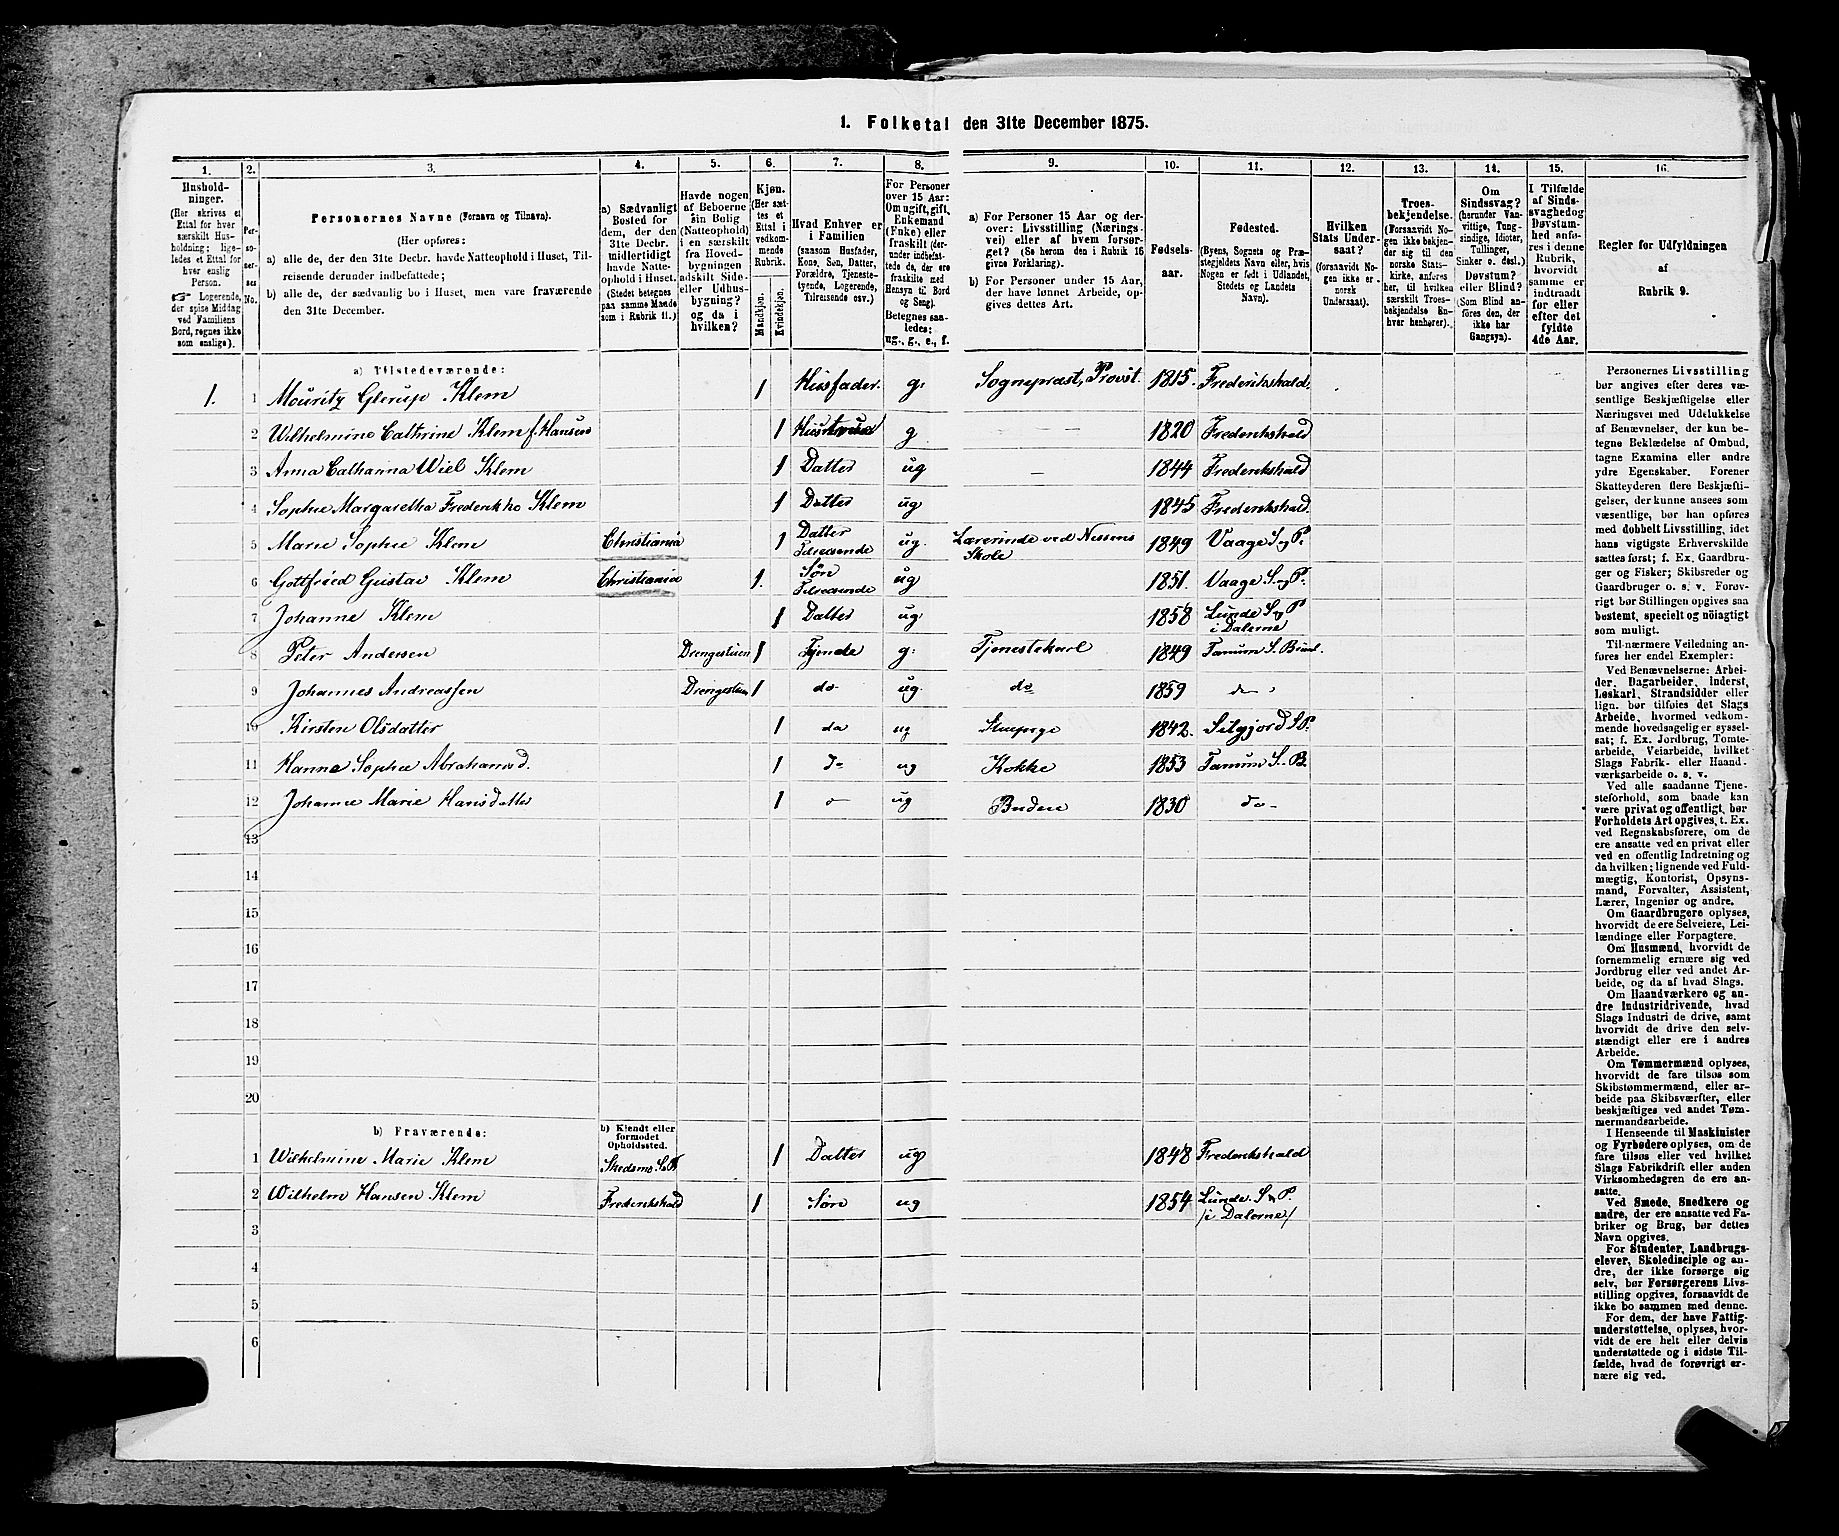 1. Folketal den 31te December 1875.
1. 2. 3. 4. 5. 6. 7. 8. 9. 10. 11. 12. 13. 14. 15. 16.
Hushold-
ninger.
(Her skrives et
Ettal for hver
særskilt Hus-
holdning; lige-
ledes et Ettal for
hver enslig
Person.
☞ Logerende,
der spise Middag
ved Familiens
Bord, regnes ikke
som enslige).
Per-
so-
ner-
nes
No.
Personernes Navne (Fornavn og Tilnavn).
(Her opføres:
a) alle de, der den 31te Decbr. havde Natteophold i Huset, Til-
reisende derunder indbefattede;
b) alle de, der sædvanlig bo i Huset, men vare fraværende
den 31te December.
a) Sædvanligt
Bosted for
dem, der den
31te Decbr.
midlertidigt
havde Natte-
ophold i Huset.
(Stedet betegnes
paa samme Maade
som i Rubrik 11.)
Havde nogen
af Beboerne
sin Bolig
(Natteophold)
i en særskilt
fra Hoved-
bygningen
adskilt Side-
eller Udhus-
bygning?
og da i
hvilken?
Kjøn.
(Her sæt-
tes et
Ettal i
vedkom-
mende
Rubrik.
Mandkjøn.
Kvindekjøn.
Hvad Enhver er
i Familien
(saasom Husfader,
Kone, Søn, Datter,
Forældre, Tjeneste-
tyende, Logerende,
Tilreisende osv.)
For Personer
over 15 Aar:
Om ugift, gift,
Enkemand
(Enke) eller
fraskilt (der-
under indbefat-
tede de, der ere
fraskilte med
Hensyn til Bord
og Seng).
Betegnes saa-
ledes:
ug., g., e., f.
a) For Personer 15 Aar og der-
over: Livsstilling (Nærings-
vei) eller af hvem forsør-
get? (Se herom den i Rubrik 16
givne Forklaring).
b) For Personer under 15 Aar,
der have lønnet Arbeide, op-
gives dettes Art.
Fødsels-
aar.
Fødested.
(Byens, Sognets og Præ-
stegjeldets Navn eller, hvis
Nogen er født i Udlandet,
Stedets og Landets
Navn).
Hvilken
Stats Under-
saat?
(forsaavidt No-
gen ikke er
norsk
Undersaat).
Troes-
bekjendelse.
(Forsaavidt No-
gen ikke bekjen-
der sig til den
norske Stats-
kirke, anføres
her, til hvilken
særskilt Troes-
bekjendelse En-
hver henhører).
Om
Sindssvag?
(herunder Van-
vittige, Tung-
sindige, Idioter,
Tullinger,
Sinker o. desl.)
Døvstum?
eller Blind?
(Som Blind an-
føres den, der
ikke har
Gangsyn).
I Tilfælde
af Sinds-
svaghed og
Døvstum-
hed anfø-
res i denne
Rubrik,
hvorvidt
samme er
indtraadt
før eller
efter det
fyldte
4de Aar.
Regler for Udfyldningen
af
Rubrik 9.
a) Tilstedeværende:
1. 1 Mouritz Glerup Klem 1 Husfader. g. Sognepræst, Provst. 1815. Frederikshald.
2 Wilhelmine Cathrine Klem f. Hansen 1 Hustrue g — 1820 Frederikshald
3 Anna Catharina Wiel Klem 1 Datter ug — 1844 Frederikshald
4 Sophie Margaretha Frederikke Klem 1 Datter ug 1845 Frederikshald.
5 Marie Sophie Klem Christiania 1 Datter Tilreisende ug. Lærerinde ved Nissens Skole 1849 Vaage S. og P.
6 Gottfried Gustav Klem Christiania 1. Søn Tilreisende ug 1851. Vaage S. og P.
7 Johanne Klem 1 Datter ug 1858 Lunde S. og P. i Dalerne
8 Peter Andersen Drengestuen 1 Tjende g. Tjenestekarl 1849 Tanum S.
9 Johannes Andreassen Drengestuen 1 do ug. do 1859 do
10 Kirsten Olsdatter 1 do ug Stuepige 1842. S. P.
11 Hanne Sophie Abrahamsd. 1 do ug Kokke 1853 Tanum S. B.
12 Johanne Marie Hansdatter 1 o ug Budeie 1830 do
13
14
15
16
17
18
19
20
b) Fraværende:
b) Kjendt eller
formodet
Opholdssted.
1 Wilhelmine Marie Klem Skedsmo S. og P. 1 Datter ug 1848 Frederikshald
2 Wilhelm Hansen Klem Frederikshald 1 Søn ug 1854 Lunde. S. og P.
/i Dalerne/
3
4
5
6
Personernes Livsstilling
bør angives efter deres væ-
sentlige Beskjæftigelse eller
Næringsvei med Udelukkelse
af Benævnelser, der kun be-
tegne Beklædelse af Ombud,
tagne Examina eller andre
ydre Egenskaber. Forener
Skatteyderen flere Beskjæfti-
gelser, der kunne ansees som
væsentlige, bør han opføres
med dobbelt Livsstilling, idet
hans vigtigste Erhvervskilde
sættes først; f. Ex. Gaardbru-
ger og Fisker; Skibsreder og
Gaardbruger o. s. v. Forøv-
rigt bør Stillingen opgives saa
bestemt, specielt og nøiagtigt
som muligt.
Til nærmere Veiledning an-
føres her endel Exempler:
Ved Benævnelserne: Arbei-
der, Dagarbeider, Inderst,
Løskarl, Strandsidder eller
lign. bør tilføies det Slags
Arbeide, hvormed vedkom-
mende hovedsagelig er syssel-
sat; f. Ex. Jordbrug, Tomte-
arbeide, Veiarbeide, hvilket
Slags Fabrik- eller Haand-
værksarbeide o. s. v.
Ved alle saadanne Tjene-
steforhold, som baade kan
være privat og offentligt, bør
Forholdets Art opgives, t. Ex.
ved Regnskabsførere, om de
ere ansatte ved en privat eller
ved en offentlig Indretning og
da hvilken; lignende ved Fuld-
mægtig, Kontorist, Opsyns-
mand, Forvalter, Assistent,
Lærer, Ingeniør og andre.
Om Gaardbrugere oplyses,
hvorvidt de ere Selveiere, Lei-
lændinge eller Forpagtere.
Om Husmænd, hvorvidt de
fornemmelig ernære sig ved
Jordbrug eller ved andet Ar-
beide, og da af hvad Slags.
Om Haandværkere og an-
dre Industridrivende, hvad
Slags Industri de drive, samt
hvorvidt de drive den selv-
stændigt eller ere i andres
Arbeide.
Om Tømmermænd oplyses,
hvorvidt de fare tilsøs som
Skibstømmermænd, eller ar-
beide paa Skibsværfter, eller
beskjæftiges ved andet Tøm-
mermandsarbeide.
I Henseende til Maskinister
og Fyrbødere oplyses, om de
fare tilsøs eller ved hvilket
Slags Fabrikdrift eller anden
Virksomhedsgren de ere an-
satte.
Ved Smede, Snedkere og
andre, der ere ansatte ved Fa-
briker og Brug, bør dettes
Navn opgives.
For Studenter, Landbrugs-
elever, Skoledisciple og an-
dre, der ikke forsørge sig
selv, bør Forsørgerens Livs-
stilling opgives, forsaavidt de
ikke bo sammen med denne.
For dem, der have Fattig-
understøttelse, oplyses, hvor-
vidt de ere helt eller delvis
understøttede og i sidste Til-
fælde, hvad de forøvrigt er-
nære sig ved.